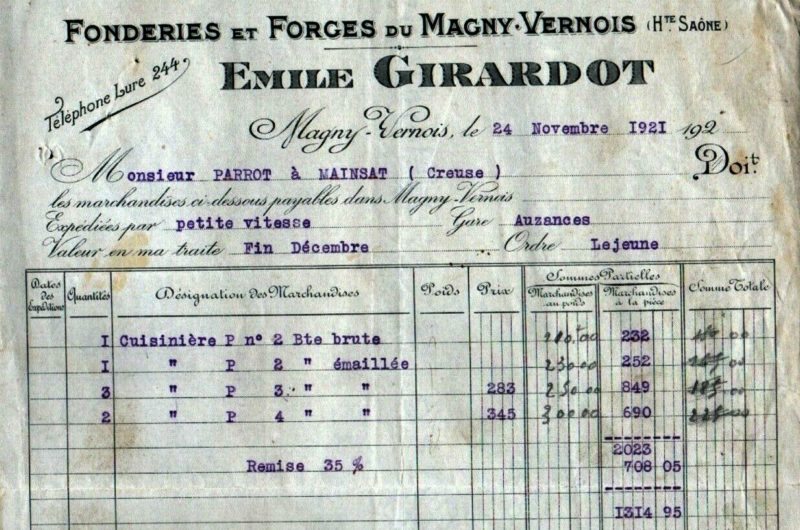 FONDERIES ET FORGES DU MAGNY-VERNOIS (HTE SAÔNE)
EMILE GIRARDOT
Téléphone Lure 244
Magny-Vernois, le 24 Novembre 1921 192
Monsieur PARROT à MAINSAT ( Creuse ) Doit:
les marchandises ci-dessous payables dans Magny-Vernois
Expédiées par petite vitesse Gare Auzances
Valeur en ma traite Fin Décembre Ordre Lejeune
Dates des Expéditions Quantités Désignation des Marchandises Poids Prix Sommes Partielles Marchandises au poids Marchandises à la pièce Somme Totale
1 Cuisinière P n° 2 Bte brute 210.00 232
1 " P 2 " émaillée 230.00 252
3 " P 3 " " 283 250 00 849
2 " P 4 " " 345 300.00 690
2023
Remise 35 % 708 05
1314 95